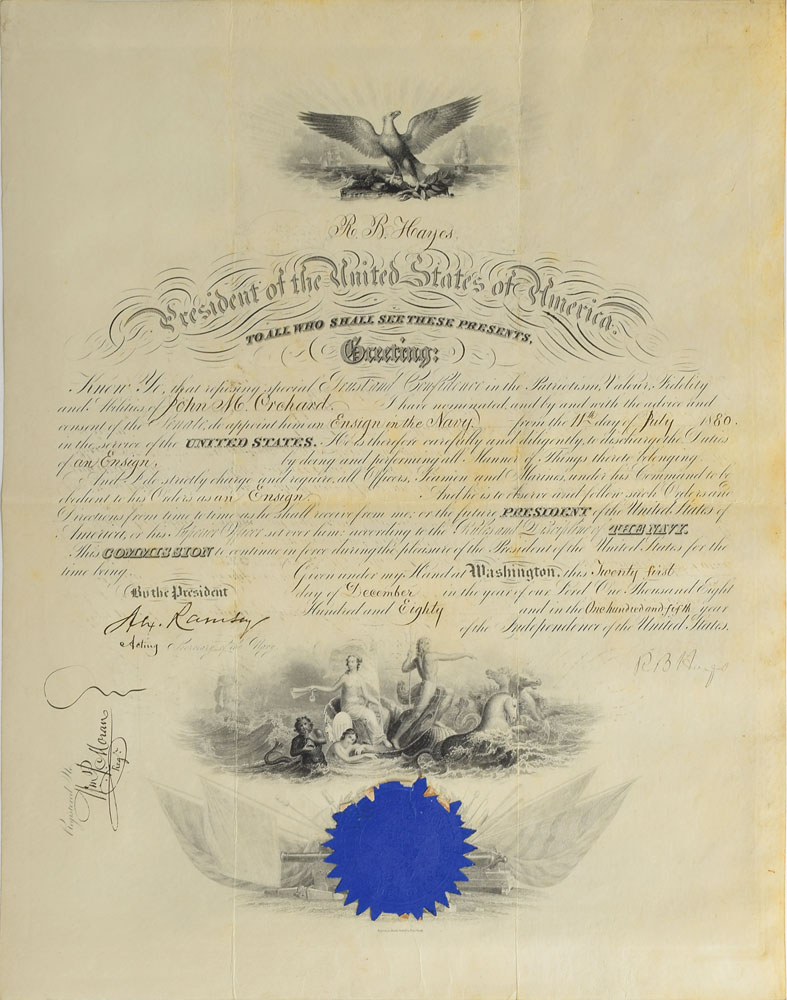 R. B. Hayes.
President of the United States of America.
TO ALL WHO SHALL SEE THESE PRESENTS,
Greeting:
Know Ye, that reposing special Trust and Confidence in the Patriotism, Valour, Fidelity
and Abilities of John M. Orchard. I have nominated, and by and with the advice and
consent of the Senate, do appoint him an Ensign in the Navy, from the 11th day of July 1880.
in the service of the UNITED STATES. He is therefore carefully and diligently to discharge the Duties
of an Ensign. by doing and performing all Manner of Things thereto belonging.
And I do strictly charge and require, all Officers, Seamen and Marines, under his Command to be
obedient to his Orders as an Ensign. And he is to observe and follow such Orders and
Directions from time to time as he shall receive from me; or the future PRESIDENT of the United States of
America, or his Superior Officer set over him; according to the Rules and Discipline of THE NAVY.
This COMMISSION to continue in force during the pleasure of the President of the United States for the
time being.
Given under my Hand at Washington, this Twenty first
day of December in the year of our Lord One Thousand Eight
Hundred and Eighty and in the One hundred and fifth year
of the Independence of the United States.
By the President
Alex. Ramsey
Acting Secretary of the Navy.
R B Hayes
Registered No
Wm P. Moran
Reg.